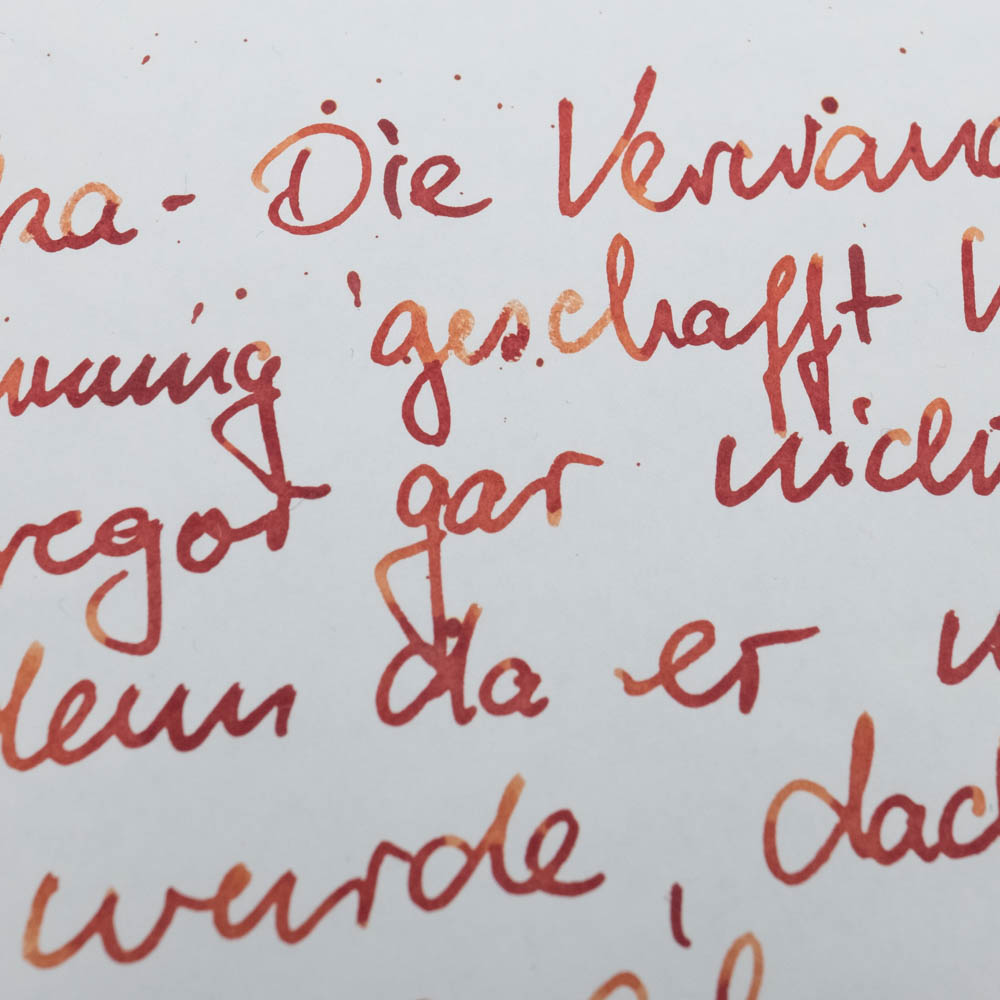 ka - Die Verwand
mmung geschafft
regor gar nicht
denn da er
wurde, dac